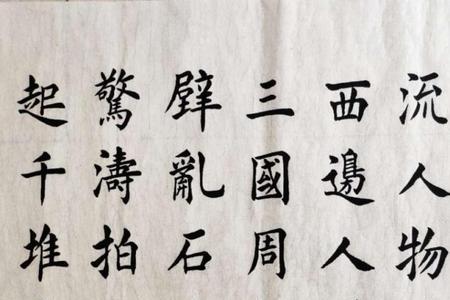 流人物
西邊人
三國周
壁亂石
驚濤拍
起千堆